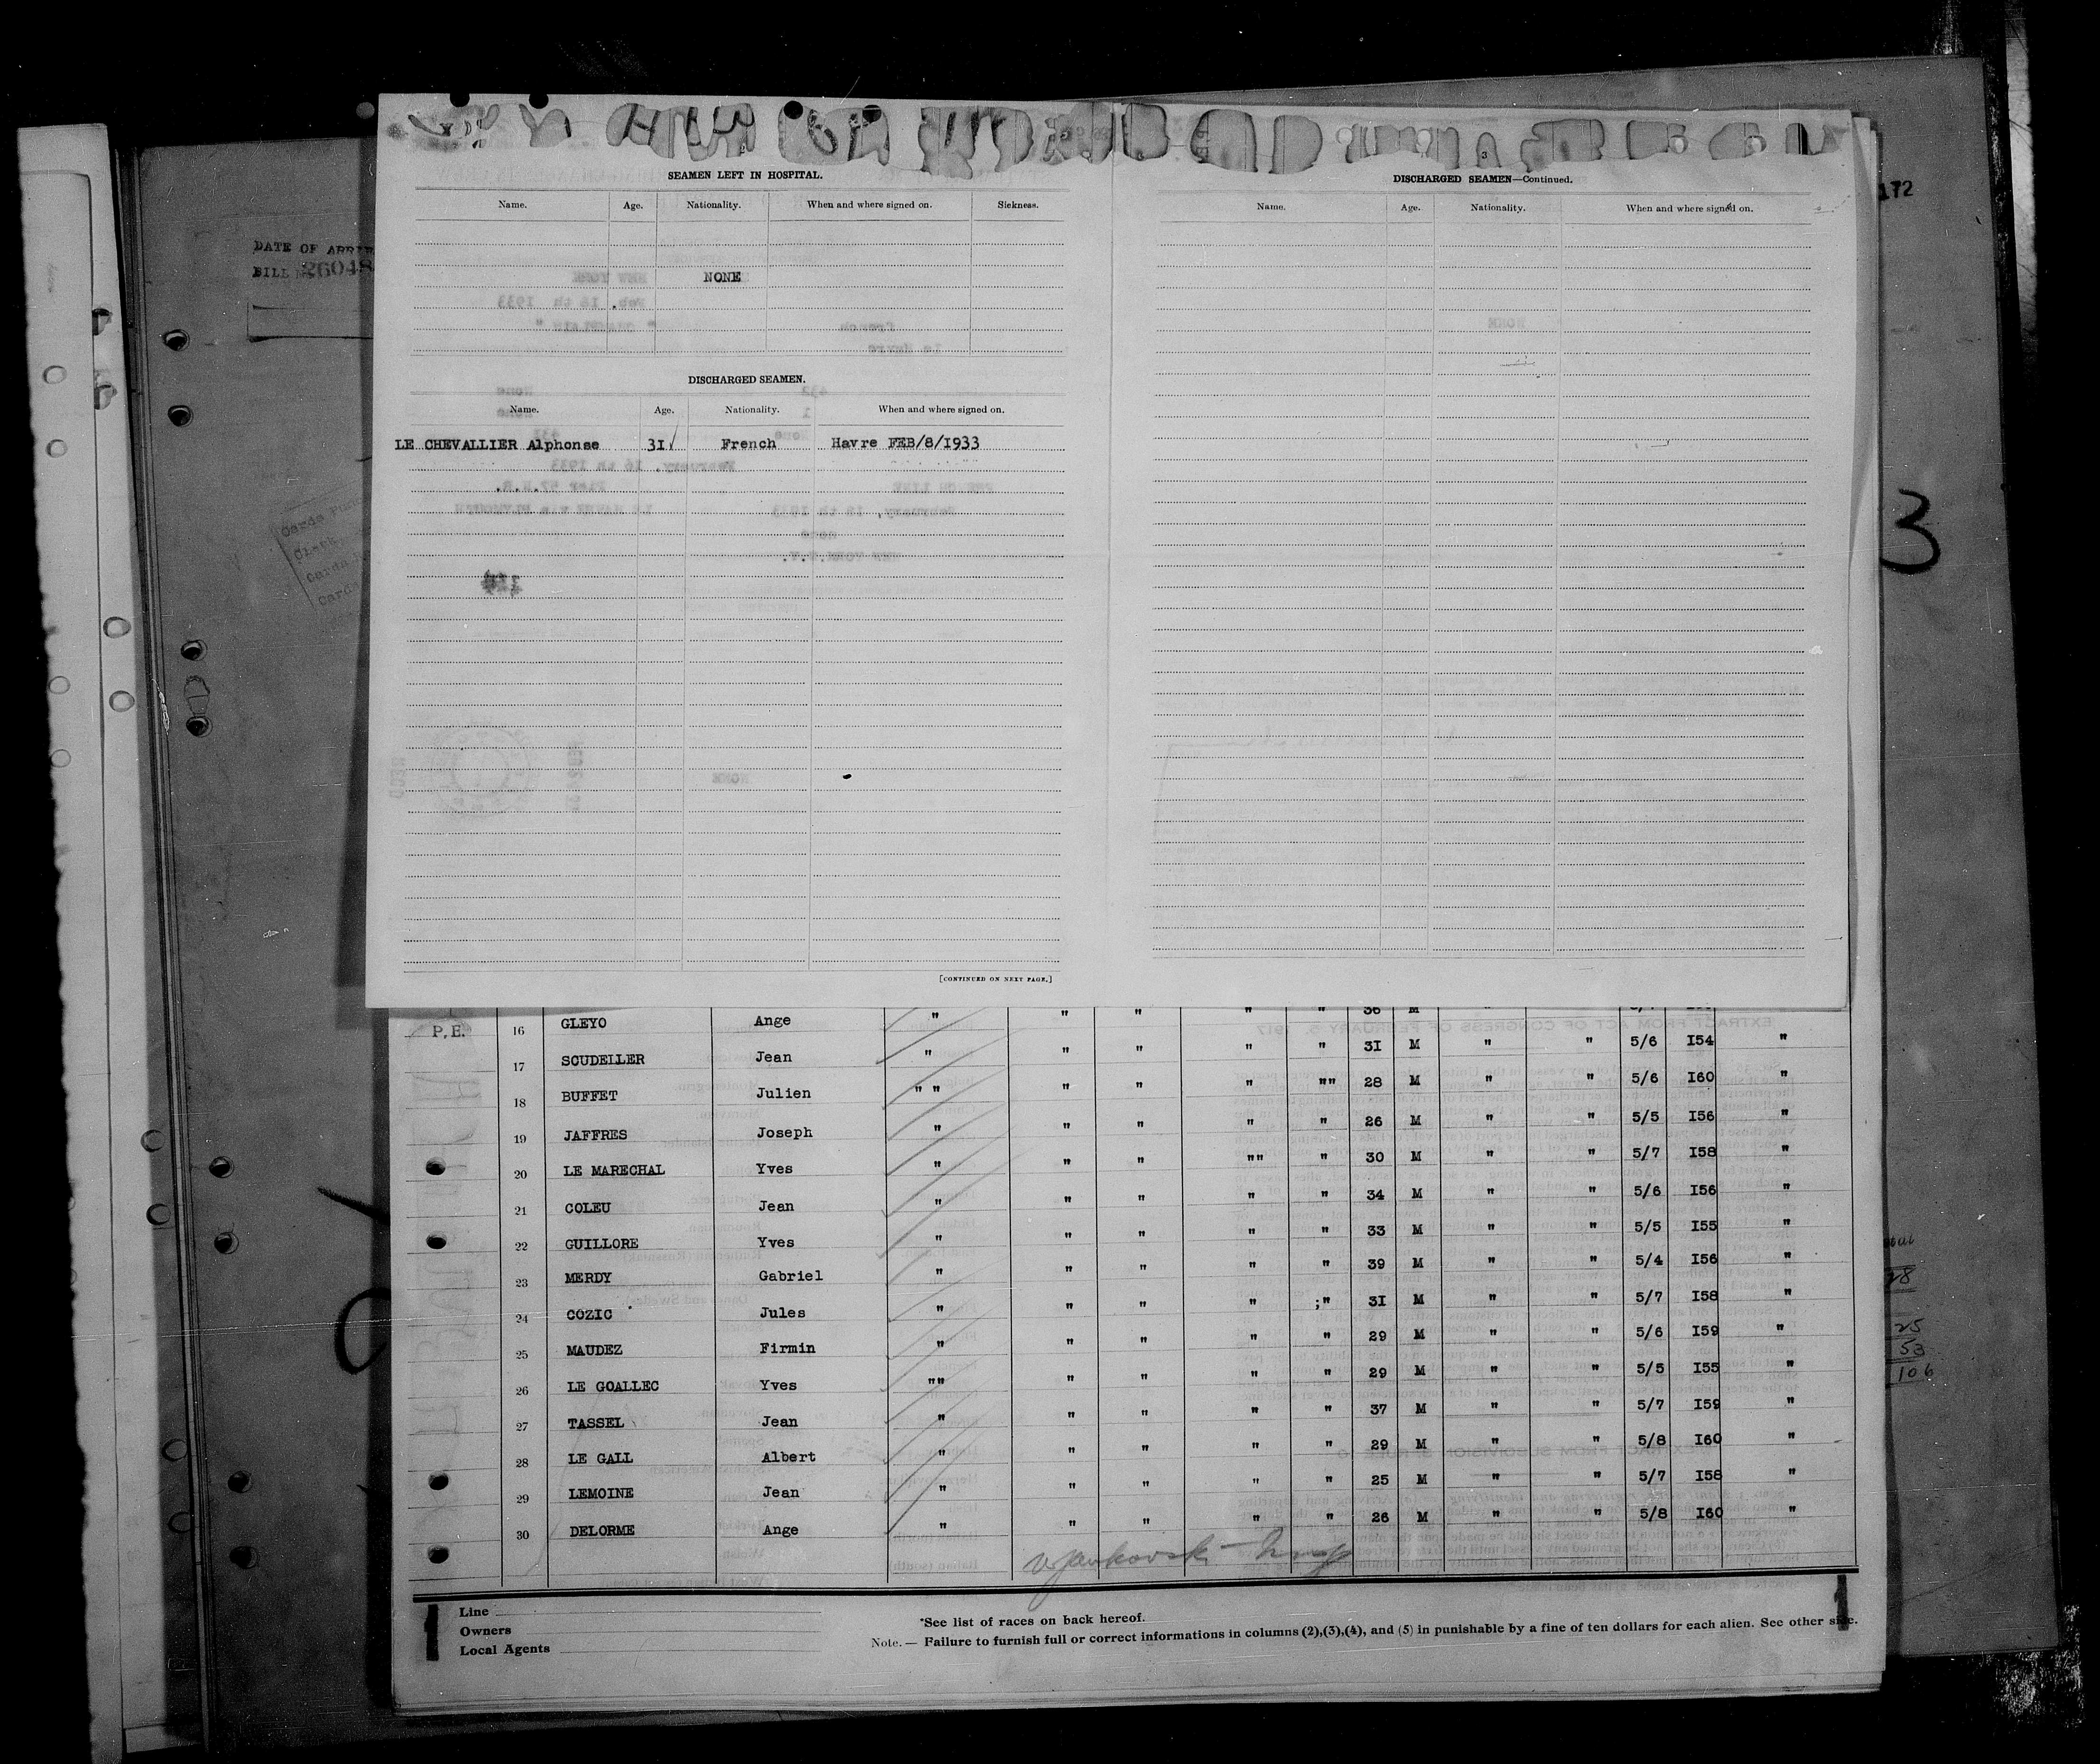 172
DATE OF ARRIV
BILL No 26048
SEAMEN LEFT IN HOSPITAL.
Name. Age. Nationality. When and where signed on. Sickness.
NONE
DISCHARGED SEAMEN.
Name. Age. Nationality. When and where signed on.
LE CHEVALLIER Alphonse 3I French Havre FEB/8/I933
[CONTINUED ON NEXT PAGE.]
3
DISCHARGED SEAMEN—Continued.
Name. Age. Nationality. When and where signed on.
3
P.E. 16 GLEYO Ange " " " " " 36 M "
17 SCUDELLER Jean " " " " " 3I M " " 5/6 I54 "
18 BUFFET Julien " " " " " "" 28 M " " 5/6 I60 "
19 JAFFRES Joseph " " " " " 26 M " " 5/5 I56 "
20 LE MARECHAL Yves " " " "" " 30 M " " 5/7 I58 "
21 COLEU Jean " " " " " 34 M " " 5/6 I56 "
22 GUILLORE Yves " " " " " 33 M " " 5/5 I55 "
23 MERDY Gabriel " " " " " 39 M " " 5/4 I56 "
24 COZIC Jules " " " " ;" 3I M " " 5/7 I58 "
25 MAUDEZ Firmin " " " " " 29 M " " 5/6 I59 "
26 LE GOALLEC Yves "" " " " " 29 M " " 5/5 I55 "
27 TASSEL Jean " " " " " 37 M " " 5/7 I59 "
28 LE GALL Albert " " " " " 29 M " " 5/8 I60 "
29 LEMOINE Jean " " " " " 25 M " " 5/7 I58 "
30 DELORME Ange " " " " " 26 M " " 5/8 I60 "
1 1
Line
Owners
Local Agents
*See list of races on back hereof.
Note.— Failure to furnish full or correct informations in columns (2),(3),(4), and (5) in punishable by a fine of ten dollars for each alien. See other side.
25
53
106